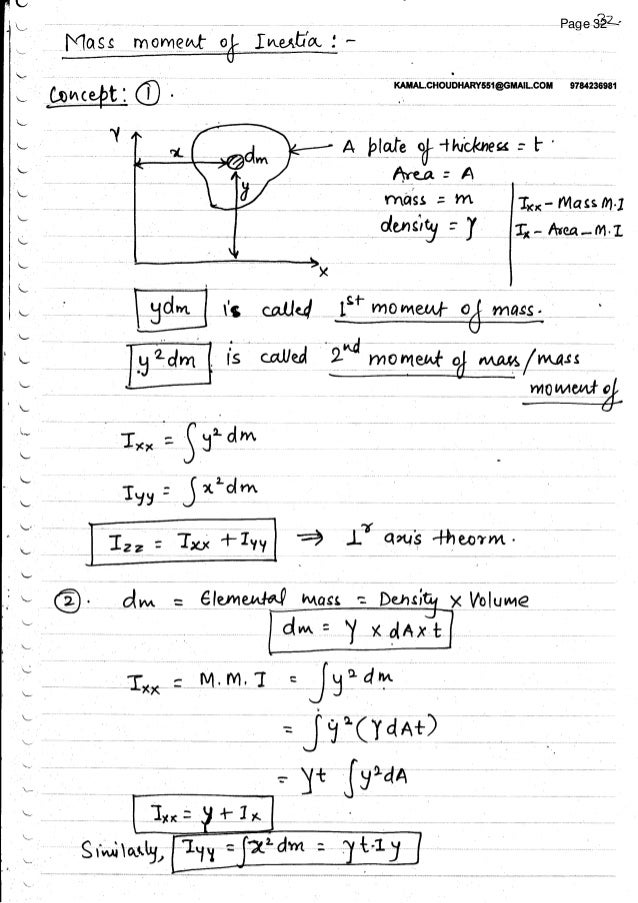 Page 32 32.
Mass moment of Inertia : -
KAMAL.CHOUDHARY551@GMAIL.COM 9784236981
Concept: ① .
Y
x
dm
y
X
A plate of thickness = t .
Area = A
mass = m
density = γ
Ixx - Mass M.I
Ix - Area - M.I
ydm is called 1st moment of mass.
y²dm is called 2nd moment of mass/mass
moment of
Ixx = ∫y² dm
Iyy = ∫x² dm
Izz = Ixx + Iyy ⇒ ⊥r axis theorm .
② . dm = Elemental mass = Density x Volume
dm = γ x dA x t
Ixx = M.M.I = ∫y² dm
= ∫y² (γdAt)
= γt ∫y²dA
Ixx = y + Ix
Similarly, Iyy = ∫x² dm = γt.Iy